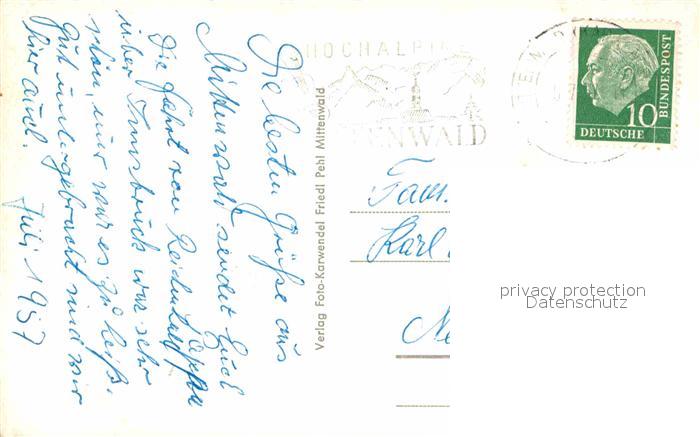 Die besten Grüße aus
Mittenwald sendet Euch
Die Fahrt von Reichenhall
über Innsbruck war sehr
schön, nur war es zu heiß.
Gut untergebracht sind wir
hier auch.
Juli 1957
Verlag Foto-Karwendel Friedl Pehl Mittenwald
HOCHALPINE
TENWALD
10
DEUTSCHE
BUNDESPOST
Fam.
Karl
privacy protection
Datenschutz